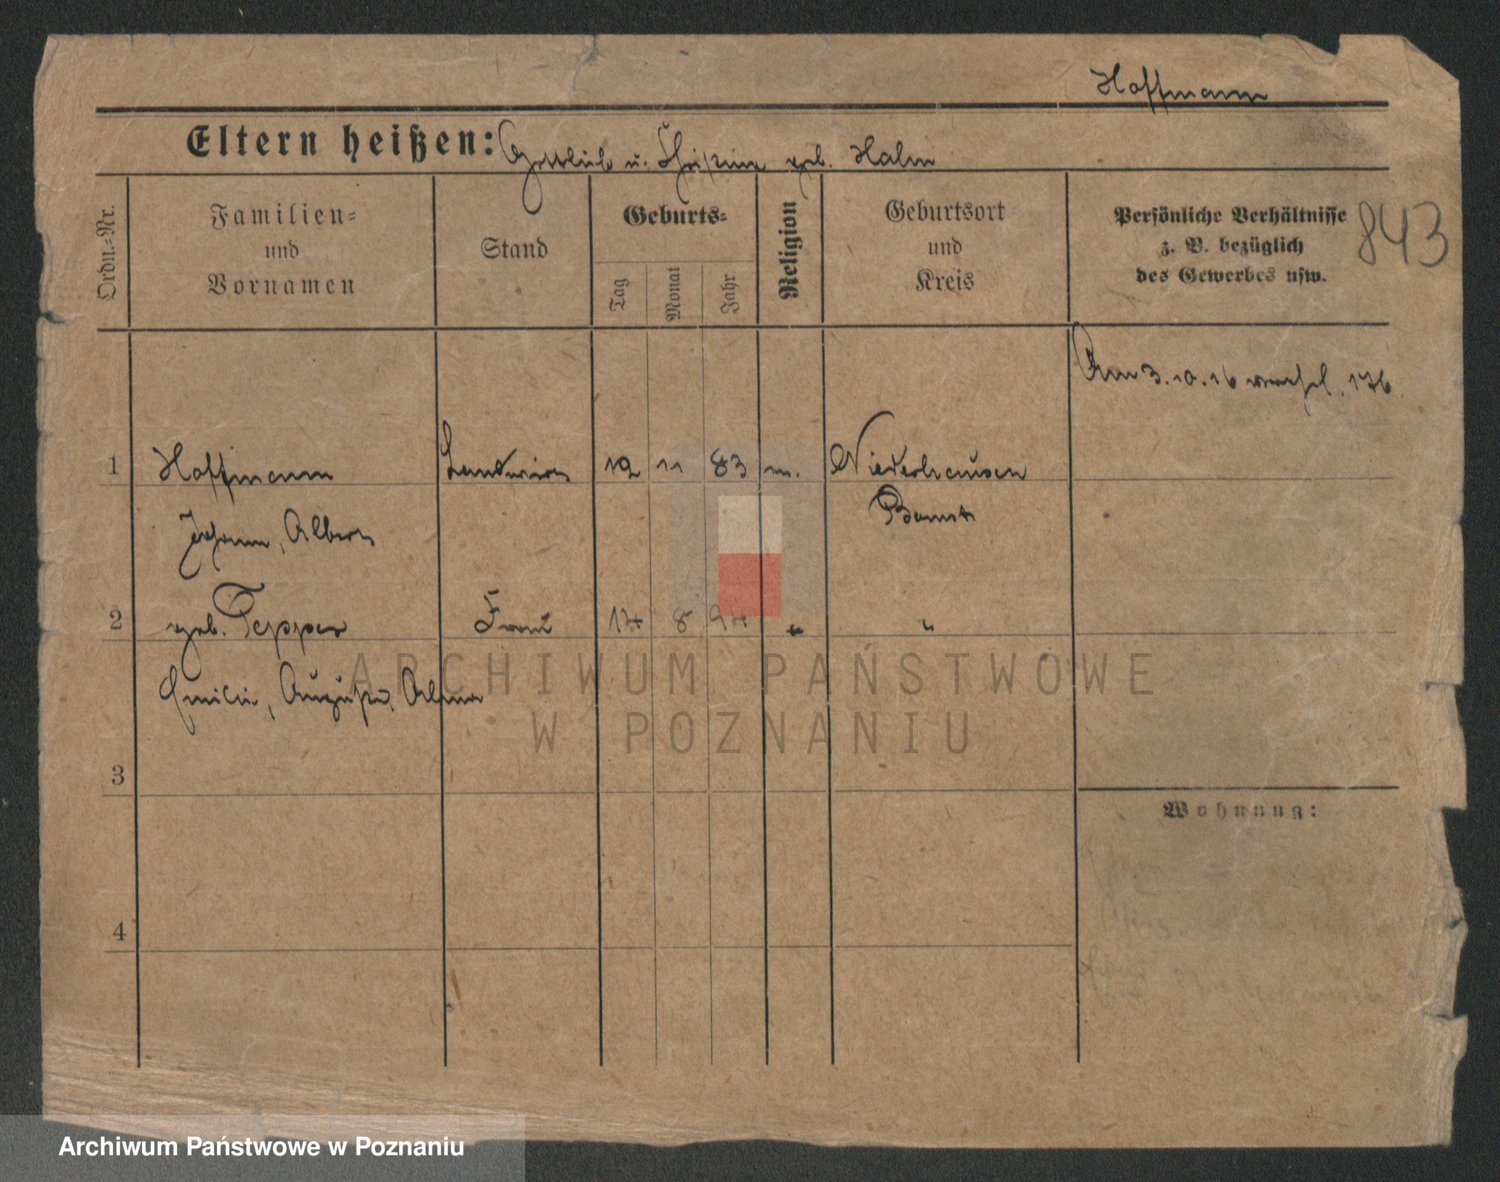 Hoffmann
Eltern heißen: Gottlieb u. Christine geb. Hahn
Ordn.=Nr.
Familien=
und
Vornamen
Stand
Geburts=
Tag
Monat
Jahr
Religion
Geburtsort
und
Kreis
Persönliche Verhältnisse
z. B. bezüglich
des Gewerbes usw.
843
Am 3.10.16
1 Hoffmann Landwirt 12 11 83 Niederhausen
Johann, Albert Bomst
2 geb. Tepper Frau 14 8 94 " "
Emilie, Auguste, Alma
3
Wohnung:
4
ARCHIWUM PAŃSTWOWE
W POZNANIU
Archiwum Państwowe w Poznaniu